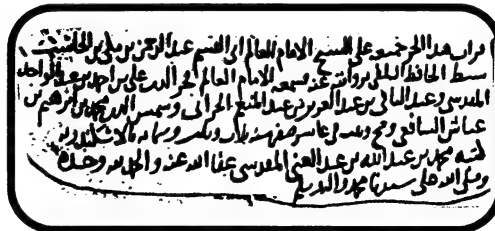 قرات هذا الجز جميعه على الشيخ الامام العالم ابي القسم عبد الرحمن بن مكي بن الحاسب
سبط الحافظ السلفي بروايته عنه فسمعه الامام العالم فخر الدين علي بن احمد بن عبد الواحد
المقدسي وعبد الباقي بن عبد العزيز بن عبد المنعم الحراني وشمس الدين محمد بن ابرهيم بن
عباش الشافعي وصح وثبت في عاشر صفر سنة وستمايه بالاسكندريه
كتبه محمد بن عبد الله بن عبد الغني المقدسي عفا الله عنه والحمد لله وحده
وصلى الله على سيدنا محمد واله وسلم